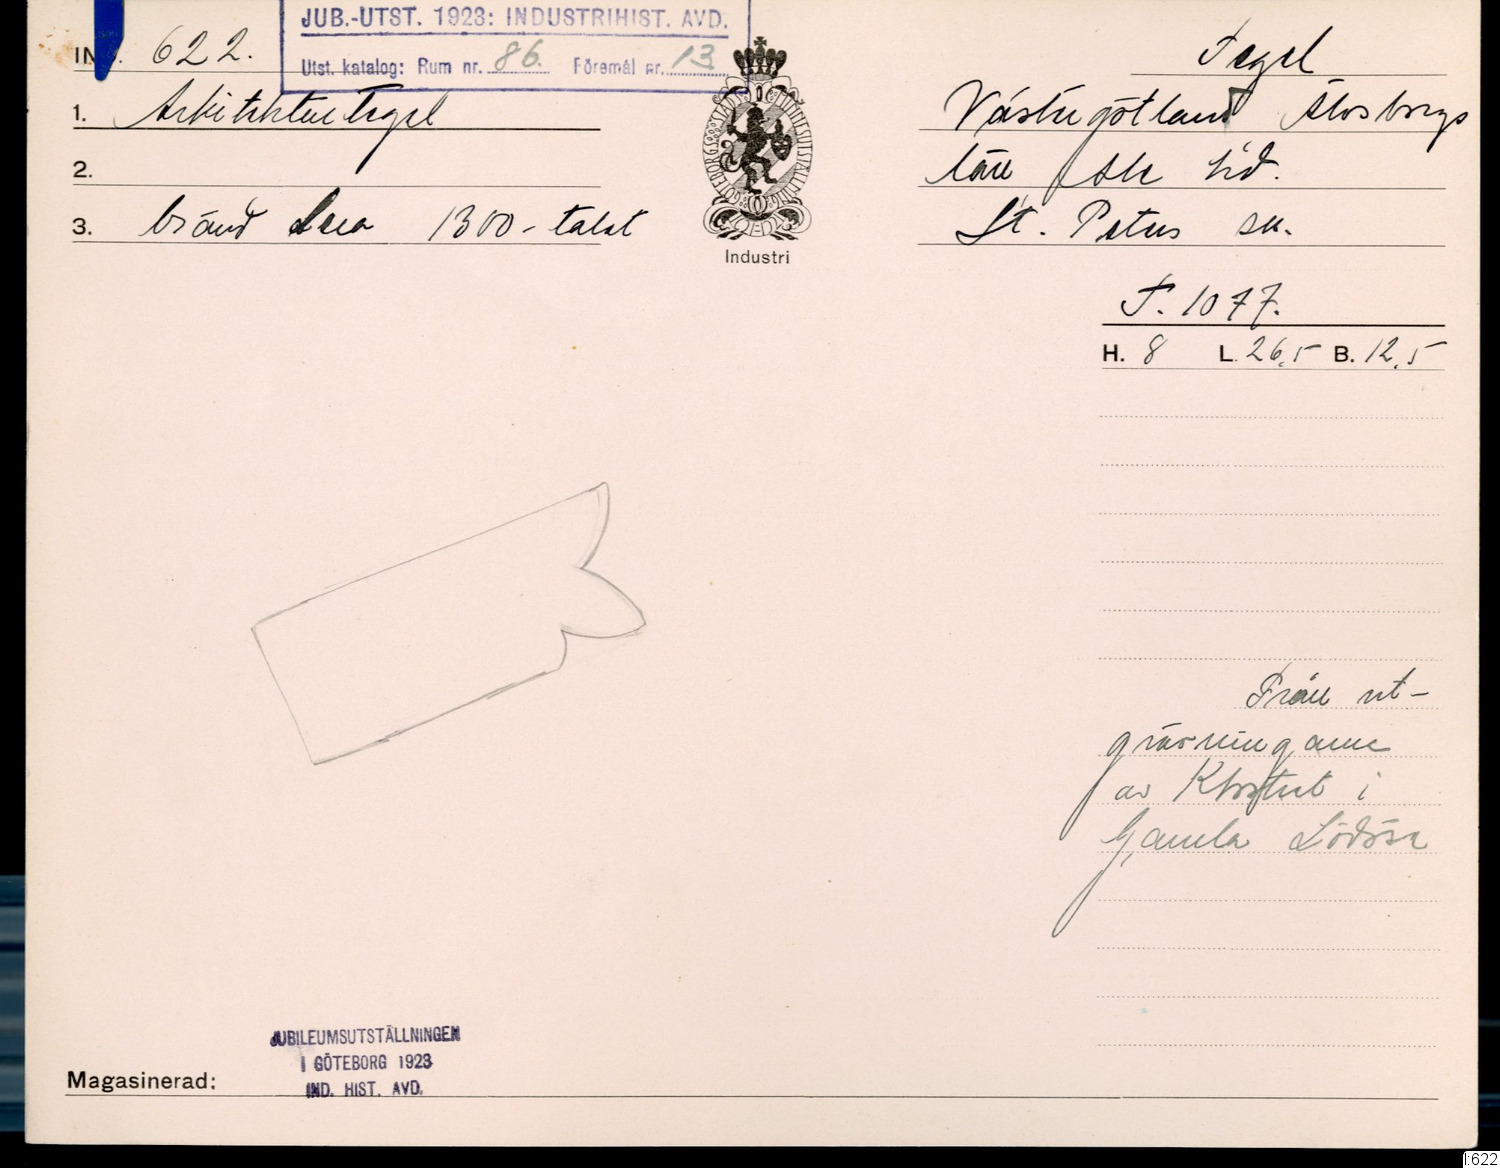 JUB.-UTST. 1923: INDUSTRIHIST. AVD.
Utst. katalog: Rum nr. 86. Föremål nr. 13
622.
Tegel
1. Arkitekturtegel
Västergötland Älvsborgs
2.
län Ale hd.
3. bränd lera 1300-talet
St. Peters sn.
GÖTEBORGS STADS MINNESUTSTÄLLNING
Industri
T. 1077.
H. 8 L. 26,5 B. 12,5
Från ut-
grävningarne
av Klostret i
Gamla Lödöse
JUBILEUMSUTSTÄLLNINGEN
I GÖTEBORG 1923
IND. HIST. AVD.
Magasinerad:
I:622